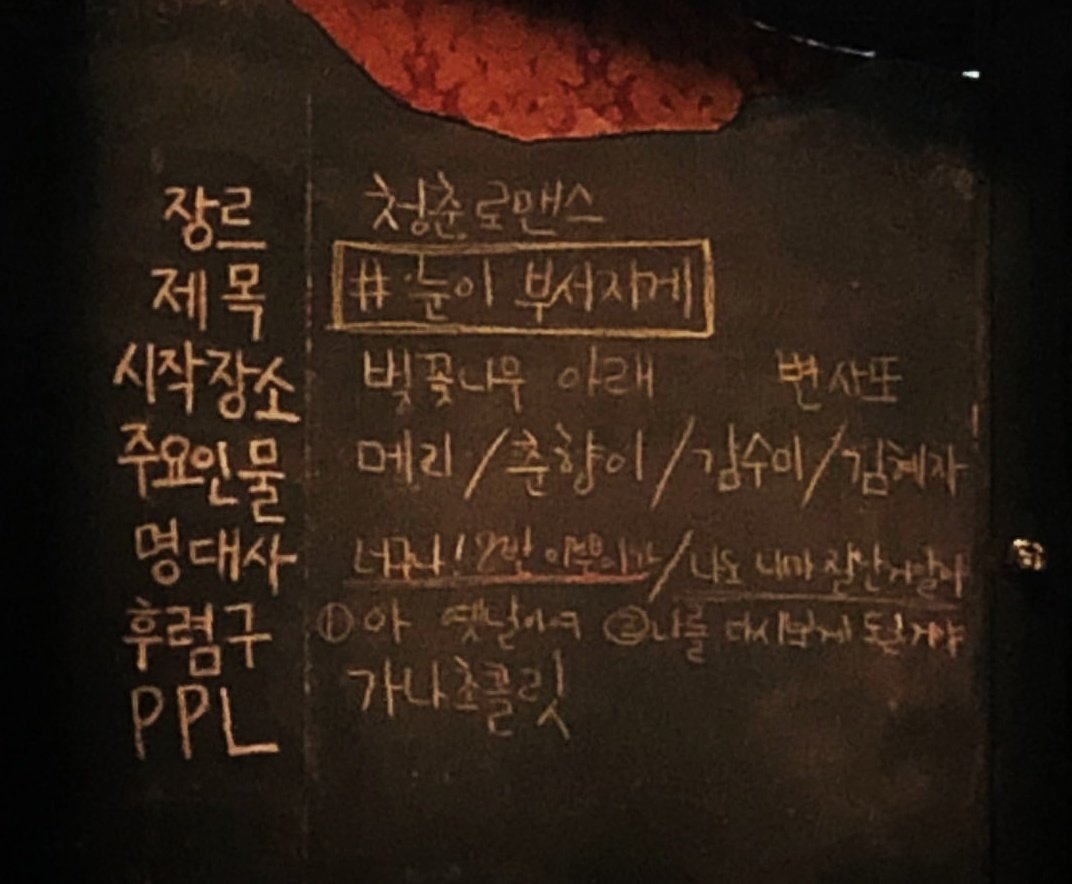 장르 청춘로맨스
제목 #눈이 부서지게
시작장소 벚꽃나무 아래 변사또
주요인물 메리/춘향이/김수미/김혜자
명대사 /나도
후렴구 ①아 옛날이여 ②나를 다시보게 될거야
PPL 가나초콜릿